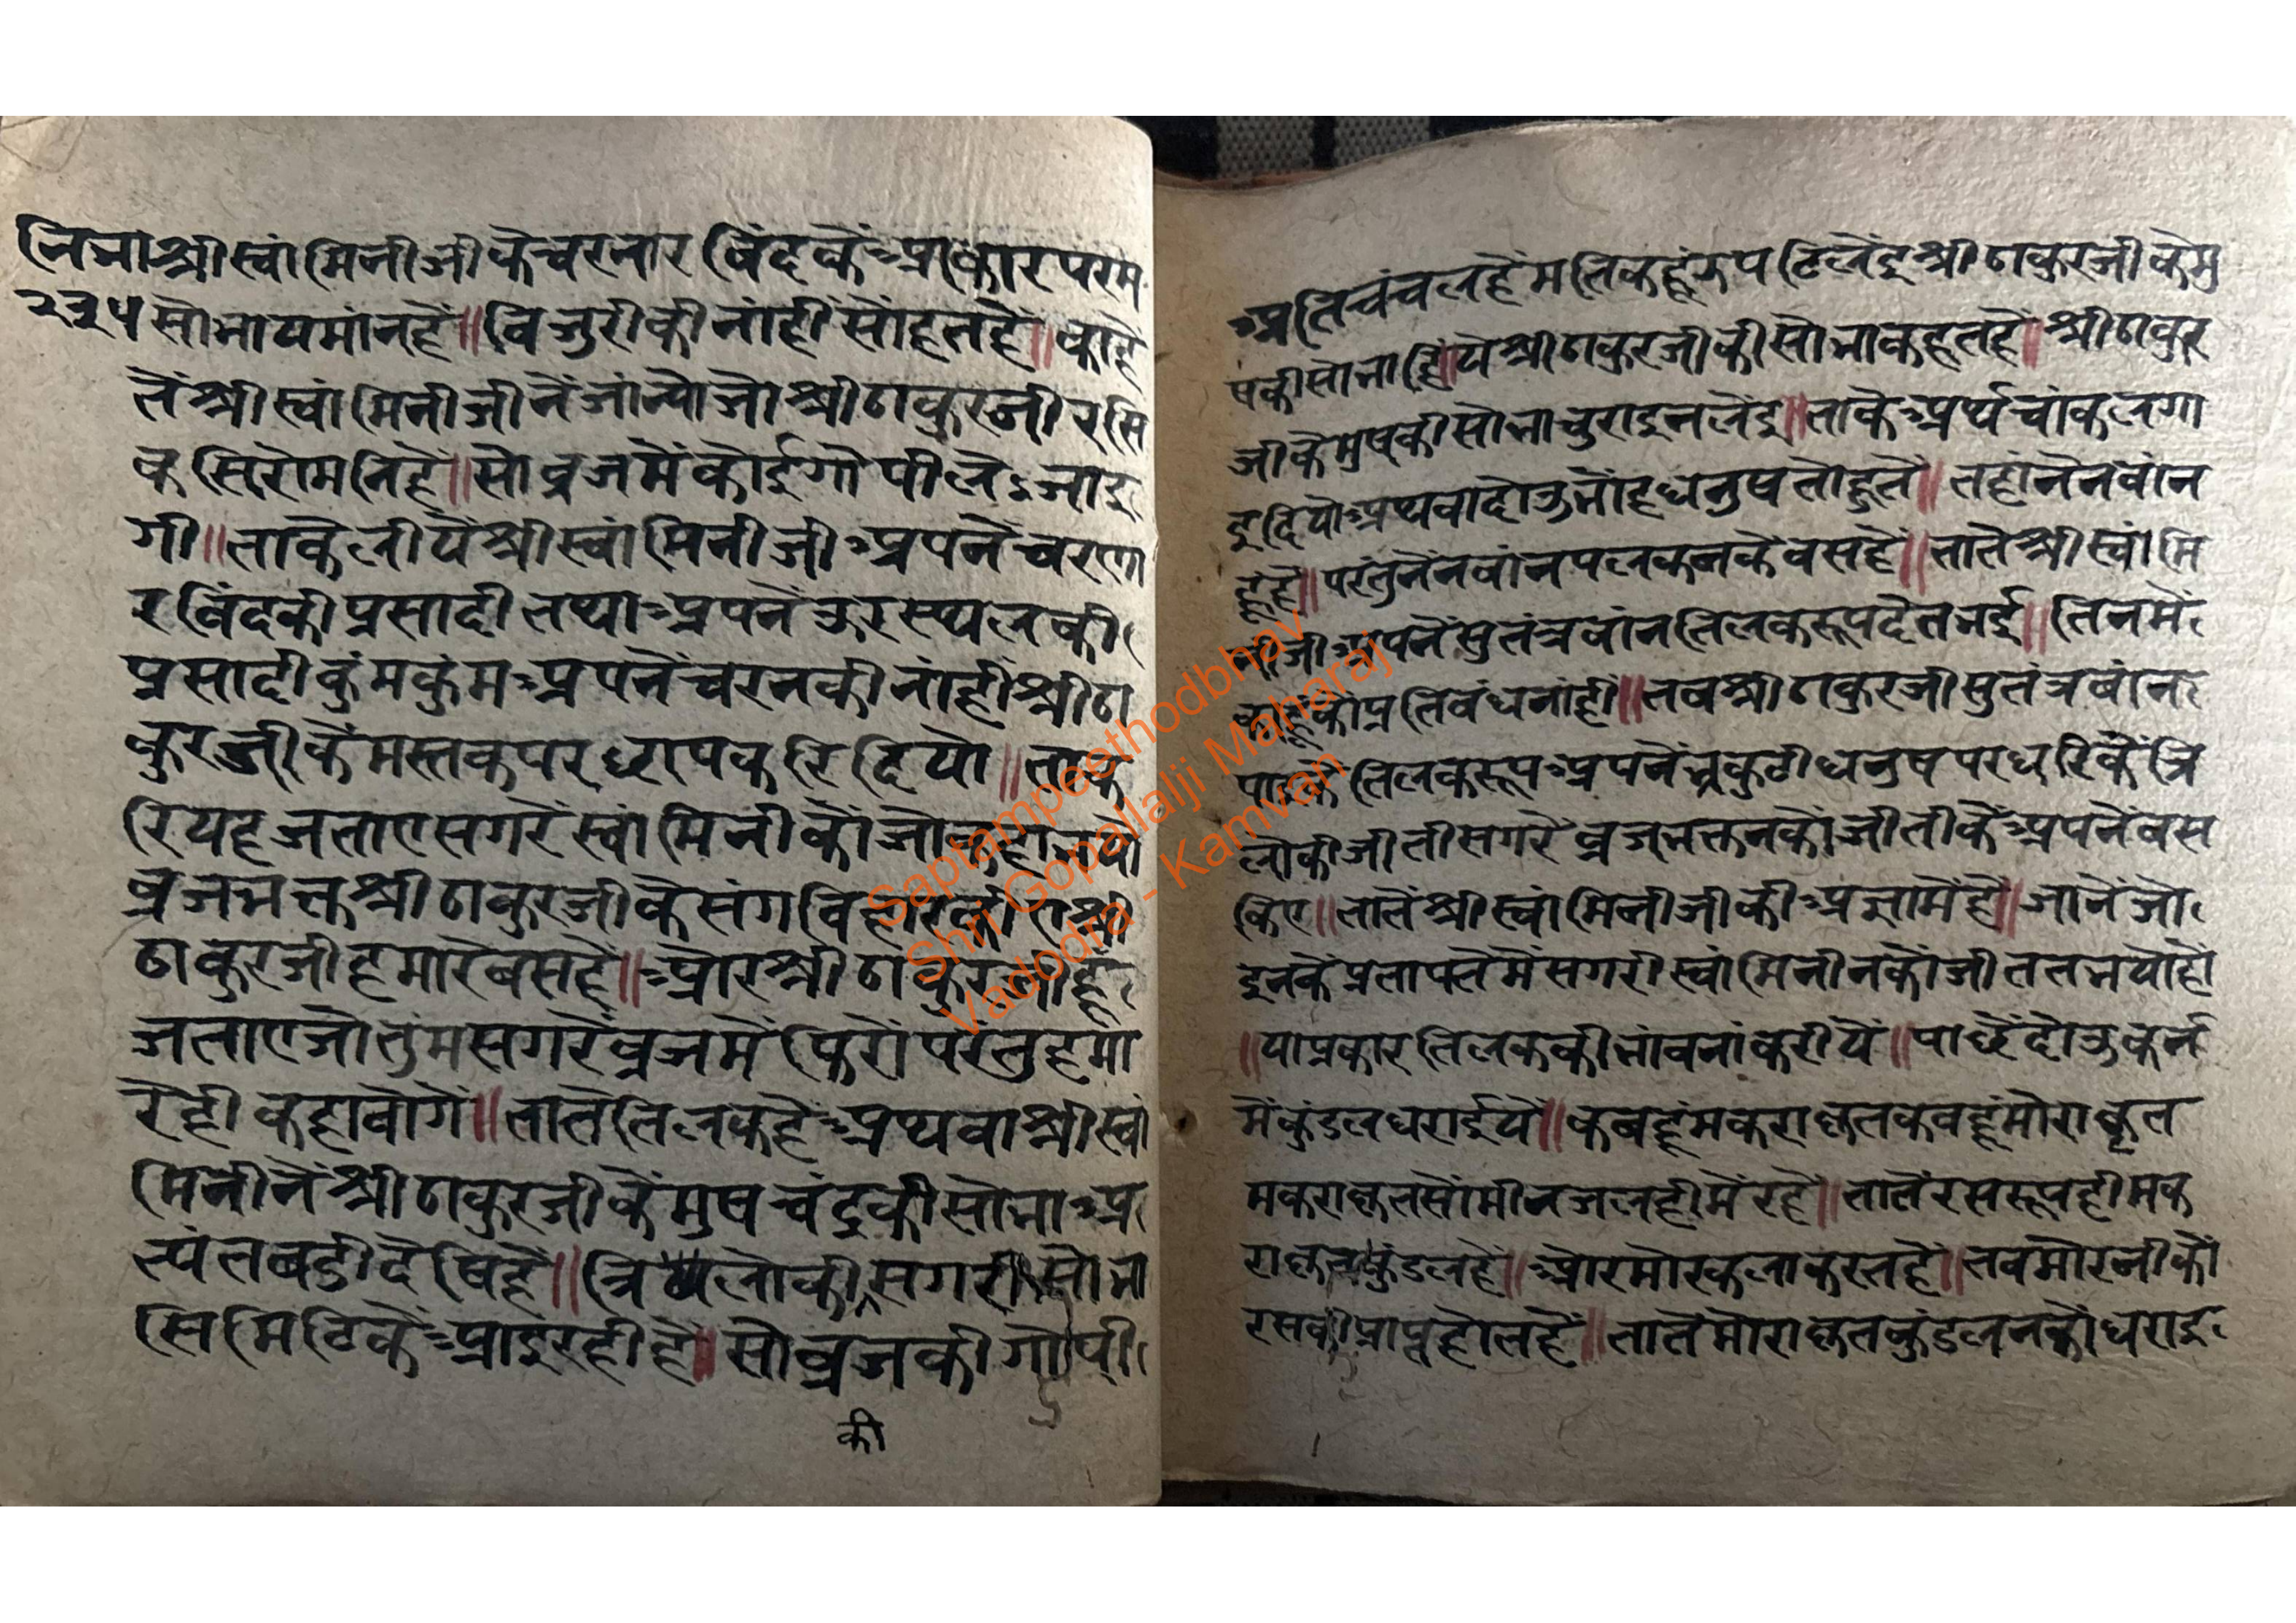 नि भा श्रीस्वांमिनीजीकेचरनारविंदकेंआकारपरम
२३५ सोभायमांनहें॥विजुरीकीनांहींसोंहतहें॥काहे
तेंश्रीस्वांमिनीजीनेंजांन्योजोश्रीठाकुरजीरसि
कसिरोमनिहें॥सोव्रजमेंकोईगोपीलेजाइ
गी॥ताकेलीयेंश्रीस्वांमिनीजीअपनेंचरणा
रविंदकीप्रसादीतथाअपनेंउरस्थलकी
प्रसादीकुंमकुंमअपनेंचरनकीनांहींश्रीठा
कुरजीकेंमस्तकपरछापकरिदियो॥ताक
रियहजताएसगरेंस्वांमिनीकोंजो
व्रजभक्तश्रीठाकुरजीकेसंगविहार श्री
ठाकुरजीहमारेबसहें॥ओरश्रीठाकुरजीहूं
जताएजोतुंमसगरेंव्रजमेंफिरोंपरंतुहमा
रेहीकहावोगे॥तातेतिलकहेअथवाश्रीस्वां
मिनीनेंश्रीठाकुरजीकेंमुषचंद्रकीसोभाअ
त्यंतबडीदेषिहें॥त्रिलोकीसगरीसोभा
सिमिटिकेंआइरहीहें॥सोव्रजकीगोपी
की
अतिचंचलहेंमतिकहूंरुपटिलेंइश्रीठाकुरजीकेमु
षकीसोभा येश्रीठाकुरजीकीसोभाकहतहें॥श्रीठाकुर
जीकेमुषकीसोभाचुराइनलेंइ॥ताकेअर्थचांकलगा
इदियोअथवादोऊभोंहधनुषतोहुते॥तहांनेनबांन
हूंहें॥परंतुनेंनबांनपलकनकेवसहें॥तातेश्रीस्वांमि
नीजीअपनेंसुतंत्रबांनतिलकरूपदेतभई॥तिनमें
काहूकोप्रतिबंधनांहीं॥तबश्रीठाकुरजीसुतंत्रबांन
पाइकेंतिलकरूपअपनेंभ्रकुटीधनुषपरधरिकेंत्रि
लोकीजीतीसगरेव्रजभक्तनकोंजीतीकेंअपनेंबस
किए॥तातेंश्रीस्वांमिनीजीकीआज्ञामेंहें॥जानेंजो
इनकेंप्रतापतेमेंसगरीस्वांमिनीनकोंजीततभयोहों
॥याप्रकारतिलककीभांवनांकरीयें॥पाछेंदोऊकर्न
मेंकुंडलधराईयें॥कबहूंमकराकृतकबहूंमोराकृत
मकराकृतसोंमीनजलहीमेंरहें॥तातेंरसरूपहीमक
राकृतकुंडलहें॥ओरमोरकलाकरतहें॥तबमोरनीकों
रसकीप्राप्तहोतहें॥तातेंमोराकृतकुंडलनकोंधराइ
Saptampeethodbhav
Shri Gopallalji Maharaj
Vadodra - Kamvan